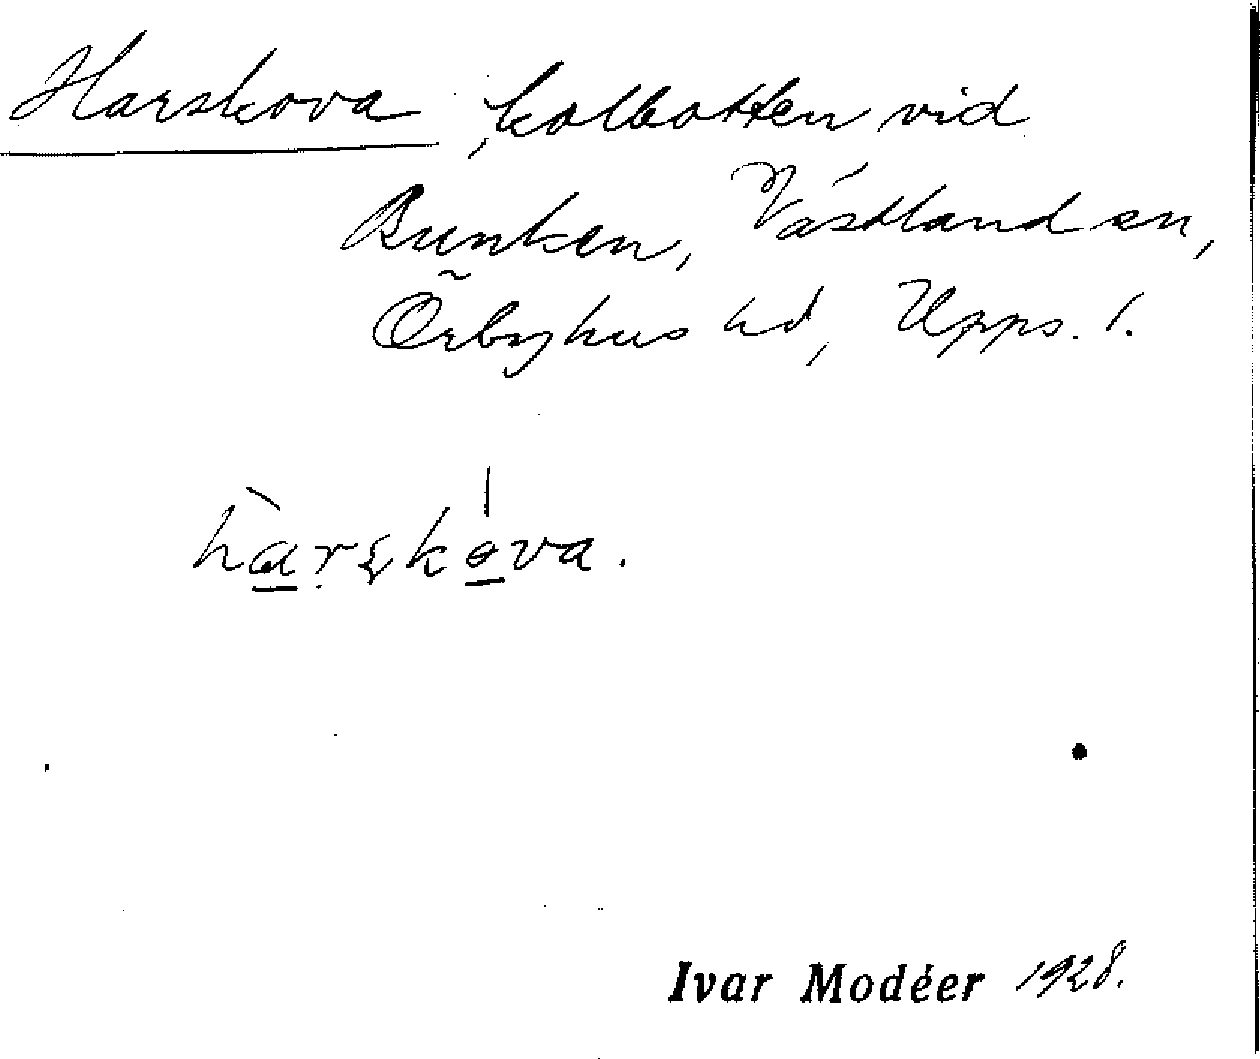 Harskova, kolbotten vid
Bunken, Västland sn,
Örbyhus hd, Upps. l.
hàrskova.
Ivar Modéer 1928.